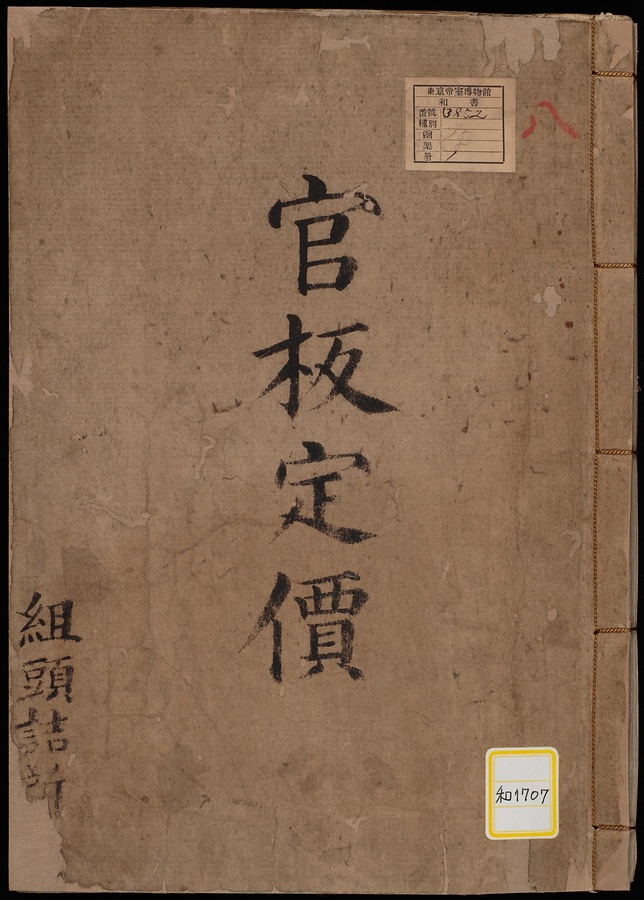 官板定價
組頭詰所
東京帝室博物館
和書
番號 13852
種別
函
架
冊 1
八
和1707